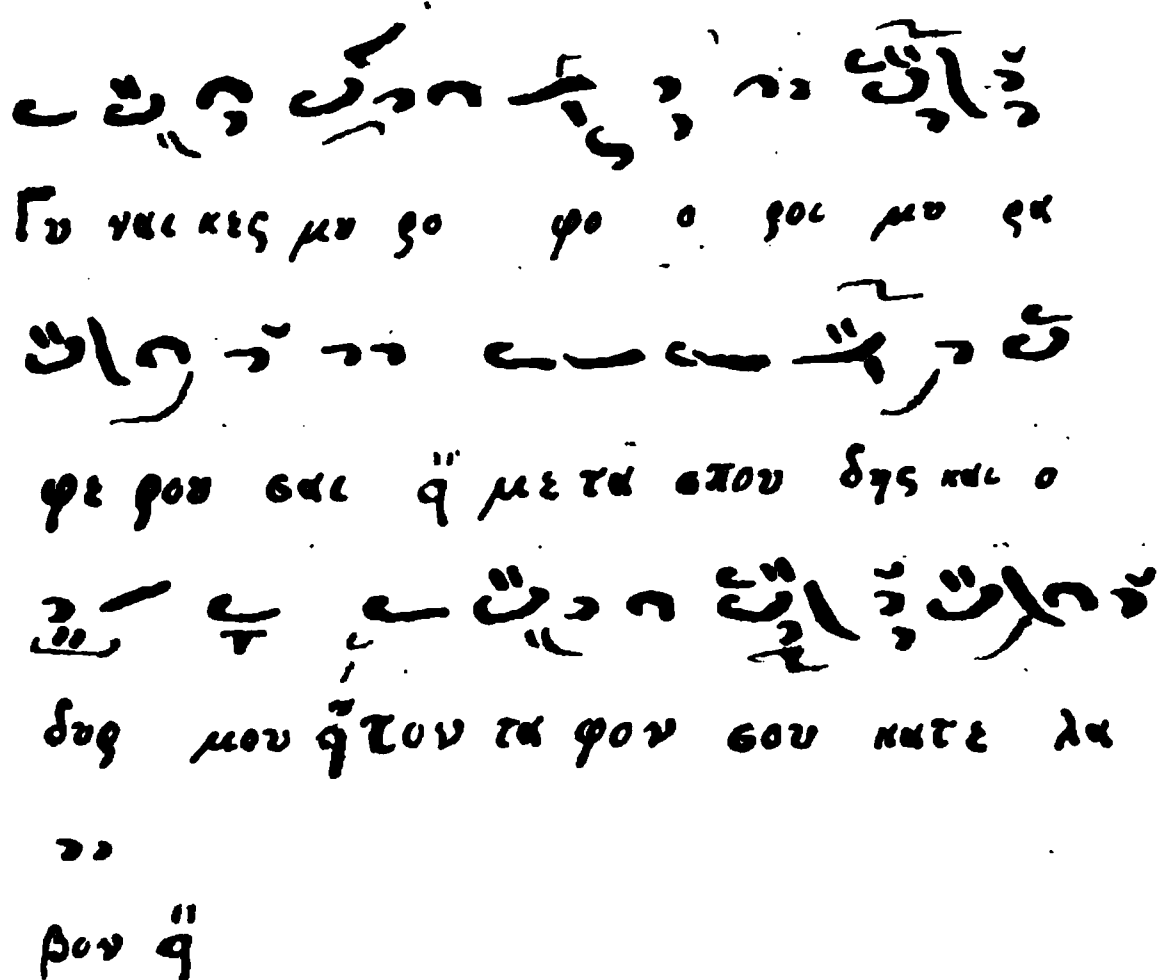 Γυ ναι κες μυ ρο φο ο ροι μυ ρα
φε ρου σαι q̈ με τα σπου δης και ο
δυρ μου q̈ τον τα φον σου κατε λα
βον q̈